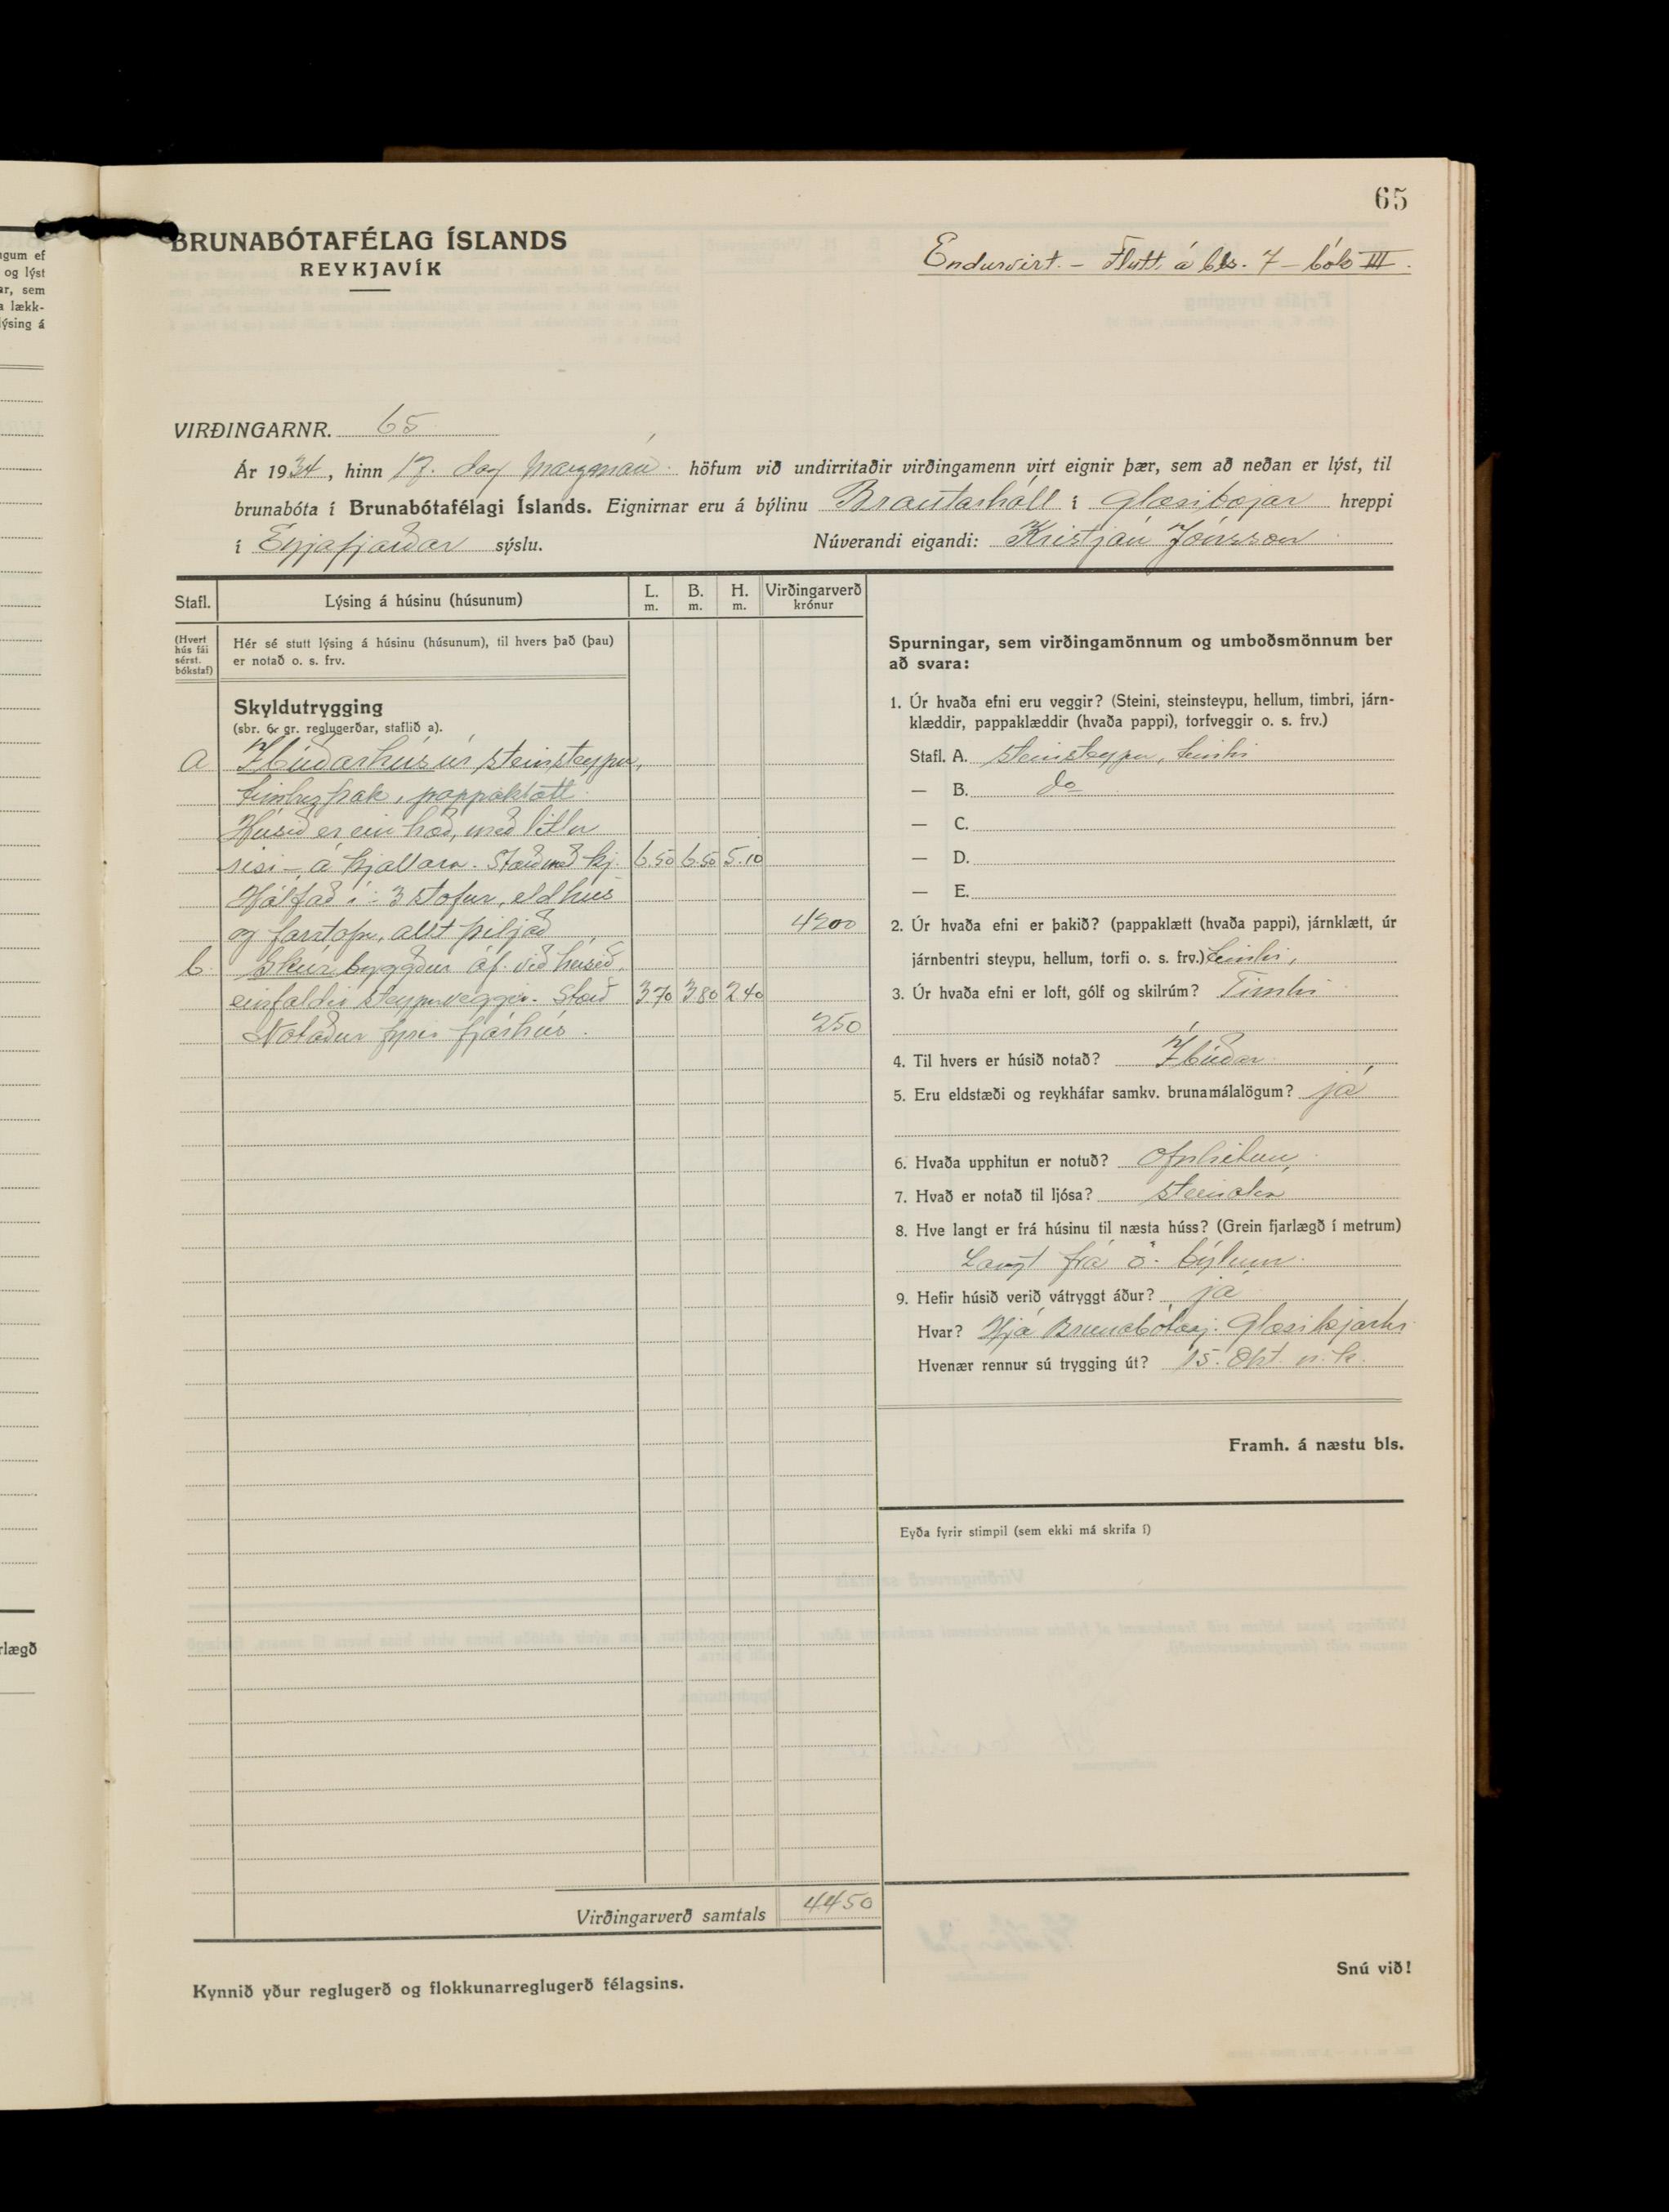 65
BRUNABÓTAFÉLAG ÍSLANDS
REYKJAVÍK
Endurvirt. - Flutt á bls. 7 - bók III.
VIRÐINGARNR. 65
Ár 1934, hinn 17. dag höfum við undirritaðir virðingamenn virt eignir þær, sem að neðan er lýst, til
brunabóta í Brunabótafélagi Íslands. Eignirnar eru á býlinu Brautarhóll í Glæsibæjar hreppi
í Eyjafjarðar sýslu. Núverandi eigandi: Kristján Jónsson
Stafl. Lýsing á húsinu (húsunum) L. m. B. m. H. m. Virðingarverð krónur
(Hvert hús fái sérst. bókstaf)
Hér sé stutt lýsing á húsinu (húsunum), til hvers það (þau)
er notað o. s. frv.
Skyldutrygging
(sbr. 6. gr. reglugerðar, staflið a).
a Íbúðarhús úr steinsteypu,
timburþak, pappaklætt
Húsið er ein hæð, með litlu
risi - á kjallara. Stærð með kj. 6.50 6.50 5.10
Hólfað í: 3 stofur, eldhús
og forstofu, allt þiljað 4200
b. Skúr byggður áf. við húsið,
einfaldir steypuveggir. Stærð 3.70 3.80 2.40
Notaður fyrir fjárhús. 250
Virðingarverð samtals 4450
Kynnið yður reglugerð og flokkunarreglugerð félagsins.
Spurningar, sem virðingamönnum og umboðsmönnum ber
að svara:
1. Úr hvaða efni eru veggir? (Steini, steinsteypu, hellum, timbri, járn-
klæddir, pappaklæddir (hvaða pappi), torfveggir o. s. frv.)
Stafl. A. steinsteypu, timbri
— B. do
— C.
— D.
— E.
2. Úr hvaða efni er þakið? (pappaklætt (hvaða pappi), járnklætt, úr
járnbentri steypu, hellum, torfi o. s. frv.) timbri,
3. Úr hvaða efni er loft, gólf og skilrúm? Timbri
4. Til hvers er húsið notað? Íbúðar
5. Eru eldstæði og reykháfar samkv. brunamálalögum? já
6. Hvaða upphitun er notuð? Ofnhitun
7. Hvað er notað til ljósa? steinolía
8. Hve langt er frá húsinu til næsta húss? (Grein fjarlægð í metrum)
Langt frá ö. býlum.
9. Hefir húsið verið vátryggt áður? já
Hvar? Hjá Glæsibæjarhr.
Hvenær rennur sú trygging út? 15. Okt. n.k.
Framh. á næstu bls.
Eyða fyrir stimpil (sem ekki má skrifa í)
Snú við!